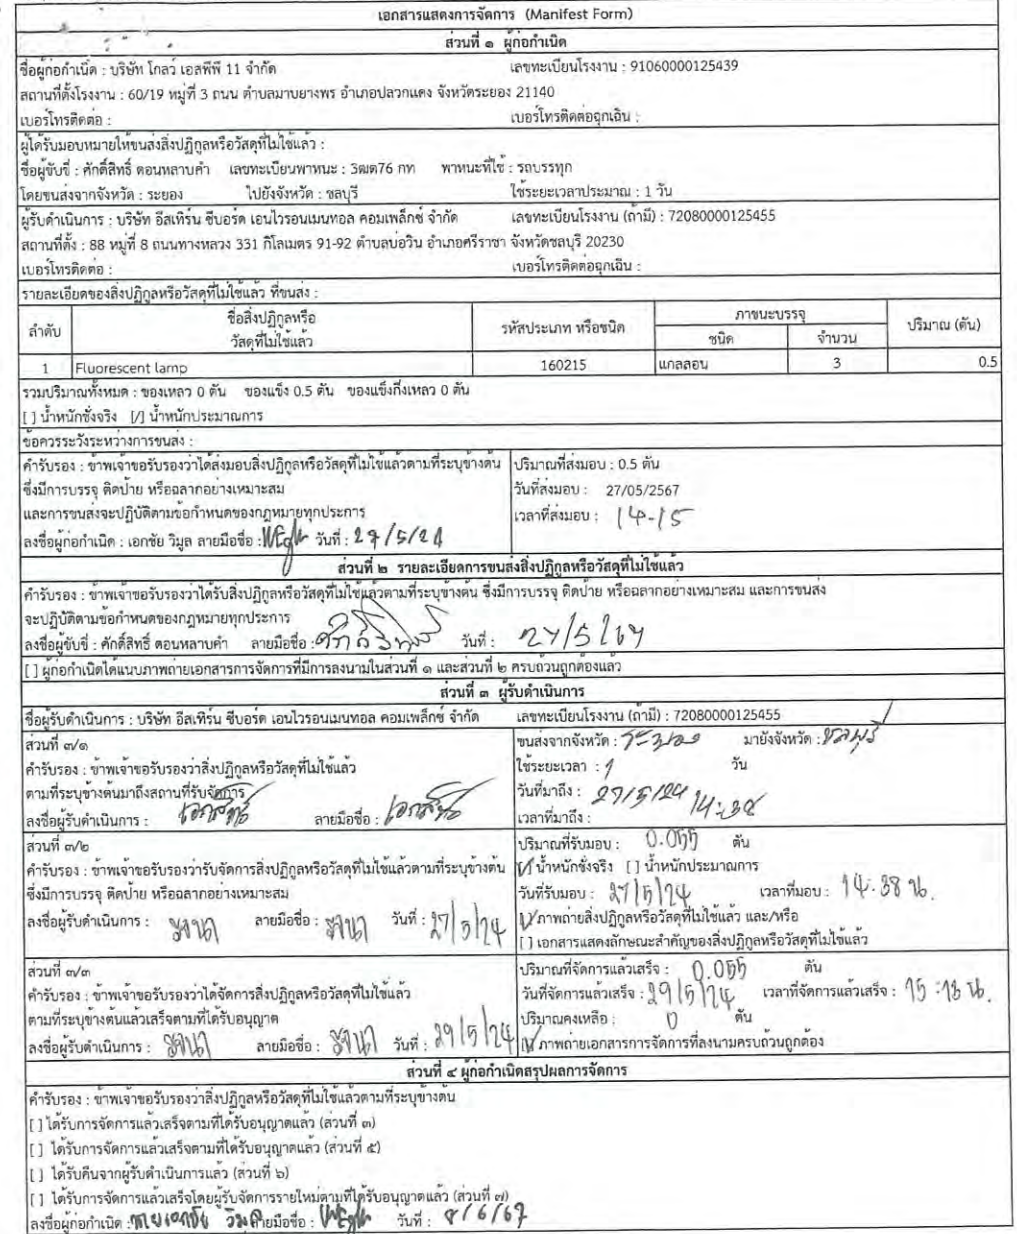 เอกสารแสดงการจัดการ (Manifest Form)
ส่วนที่ ๑ ผู้ก่อกำเนิด
ชื่อผู้ก่อกำเนิด : บริษัท โกลว์ เอสพีพี 11 จำกัด เลขทะเบียนโรงงาน : 91060000125439
สถานที่ตั้งโรงงาน : 60/19 หมู่ที่ 3 ถนน ตำบลมาบยางพร อำเภอปลวกแดง จังหวัดระยอง 21140
เบอร์โทรติดต่อ : เบอร์โทรติดต่อฉุกเฉิน :
ผู้ได้รับมอบหมายให้ขนส่งสิ่งปฏิกูลหรือวัสดุที่ไม่ใช้แล้ว :
ชื่อผู้ขับขี่ : ศักดิ์สิทธิ์ ดอนหลาบคำ เลขทะเบียนพาหนะ : 3ฒต76 กท พาหนะที่ใช้ : รถบรรทุก
โดยขนส่งจากจังหวัด : ระยอง ไปยังจังหวัด : ชลบุรี ใช้ระยะเวลาประมาณ : 1 วัน
ผู้รับดำเนินการ : บริษัท อีสเทิร์น ซีบอร์ด เอนไวรอนเมนทอล คอมเพล็กซ์ จำกัด เลขทะเบียนโรงงาน (ถ้ามี) : 72080000125455
สถานที่ตั้ง : 88 หมู่ที่ 8 ถนนทางหลวง 331 กิโลเมตร 91-92 ตำบลบ่อวิน อำเภอศรีราชา จังหวัดชลบุรี 20230
เบอร์โทรติดต่อ : เบอร์โทรติดต่อฉุกเฉิน :
รายละเอียดของสิ่งปฏิกูลหรือวัสดุที่ไม่ใช้แล้ว ที่ขนส่ง :
ลำดับ ชื่อสิ่งปฏิกูลหรือวัสดุที่ไม่ใช้แล้ว รหัสประเภท หรือชนิด ภาชนะบรรจุ ปริมาณ (ตัน)
ชนิด จำนวน
1 Fluorescent lamp 160215 แกลลอน 3 0.5
รวมปริมาณทั้งหมด : ของเหลว 0 ตัน ของแข็ง 0.5 ตัน ของแข็งกึ่งเหลว 0 ตัน
[ ] น้ำหนักชั่งจริง [/] น้ำหนักประมาณการ
ข้อควรระวังระหว่างการขนส่ง :
คำรับรอง : ข้าพเจ้าขอรับรองว่าได้ส่งมอบสิ่งปฏิกูลหรือวัสดุที่ไม่ใช้แล้วตามที่ระบุข้างต้น ปริมาณที่ส่งมอบ : 0.5 ตัน
ซึ่งมีการบรรจุ ติดป้าย หรือฉลากอย่างเหมาะสม วันที่ส่งมอบ : 27/05/2567
และการขนส่งจะปฏิบัติตามข้อกำหนดของกฎหมายทุกประการ เวลาที่ส่งมอบ : 14-15
ลงชื่อผู้ก่อกำเนิด : เอกชัย วิมูล ลายมือชื่อ : วันที่ : 27/5/24
ส่วนที่ ๒ รายละเอียดการขนส่งสิ่งปฏิกูลหรือวัสดุที่ไม่ใช้แล้ว
คำรับรอง : ข้าพเจ้าขอรับรองว่าได้รับสิ่งปฏิกูลหรือวัสดุที่ไม่ใช้แล้วตามที่ระบุข้างต้น ซึ่งมีการบรรจุ ติดป้าย หรือฉลากอย่างเหมาะสม และการขนส่ง
จะปฏิบัติตามข้อกำหนดของกฎหมายทุกประการ
ลงชื่อผู้ขับขี่ : ศักดิ์สิทธิ์ ดอนหลาบคำ ลายมือชื่อ : วันที่ : 27/5/67
[ ] ผู้ก่อกำเนิดได้แนบภาพถ่ายเอกสารการจัดการที่มีการลงนามในส่วนที่ ๑ และส่วนที่ ๒ ครบถ้วนถูกต้องแล้ว
ส่วนที่ ๓ ผู้รับดำเนินการ
ชื่อผู้รับดำเนินการ : บริษัท อีสเทิร์น ซีบอร์ด เอนไวรอนเมนทอล คอมเพล็กซ์ จำกัด เลขทะเบียนโรงงาน (ถ้ามี) : 72080000125455
ส่วนที่ ๓/๑ ขนส่งจากจังหวัด : ระยอง มายังจังหวัด : ชลบุรี
คำรับรอง : ข้าพเจ้าขอรับรองว่าสิ่งปฏิกูลหรือวัสดุที่ไม่ใช้แล้ว ใช้ระยะเวลา : 1 วัน
ตามที่ระบุข้างต้นมาถึงสถานที่รับจัดการ วันที่มาถึง : 27/5/24
ลงชื่อผู้รับดำเนินการ : ลายมือชื่อ : เวลาที่มาถึง :
ส่วนที่ ๓/๒ ปริมาณที่รับมอบ : 0.055 ตัน
คำรับรอง : ข้าพเจ้าขอรับรองว่ารับจัดการสิ่งปฏิกูลหรือวัสดุที่ไม่ใช้แล้วตามที่ระบุข้างต้น [/] น้ำหนักชั่งจริง [ ] น้ำหนักประมาณการ
ซึ่งมีการบรรจุ ติดป้าย หรือฉลากอย่างเหมาะสม วันที่รับมอบ : 27/5/24 เวลาที่มอบ : 14.38 น.
ลงชื่อผู้รับดำเนินการ : ลายมือชื่อ : วันที่ : 27/5/24 [/] ภาพถ่ายสิ่งปฏิกูลหรือวัสดุที่ไม่ใช้แล้ว และ/หรือ
[ ] เอกสารแสดงลักษณะสำคัญของสิ่งปฏิกูลหรือวัสดุที่ไม่ใช้แล้ว
ส่วนที่ ๓/๓ ปริมาณที่จัดการแล้วเสร็จ : 0.055 ตัน
คำรับรอง : ข้าพเจ้าขอรับรองว่าได้จัดการสิ่งปฏิกูลหรือวัสดุที่ไม่ใช้แล้ว วันที่จัดการแล้วเสร็จ : 29/5/24 เวลาที่จัดการแล้วเสร็จ :
ตามที่ระบุข้างต้นแล้วเสร็จตามที่ได้รับอนุญาต ปริมาณคงเหลือ : 0 ตัน
ลงชื่อผู้รับดำเนินการ : ลายมือชื่อ : วันที่ : 29/5/24 [/] ภาพถ่ายเอกสารการจัดการที่ลงนามครบถ้วนถูกต้อง
ส่วนที่ ๔ ผู้ก่อกำเนิดสรุปผลการจัดการ
คำรับรอง : ข้าพเจ้าขอรับรองว่าสิ่งปฏิกูลหรือวัสดุที่ไม่ใช้แล้วตามที่ระบุข้างต้น
[ ] ได้รับการจัดการแล้วเสร็จตามที่ได้รับอนุญาตแล้ว (ส่วนที่ ๓)
[ ] ได้รับการจัดการแล้วเสร็จตามที่ได้รับอนุญาตแล้ว (ส่วนที่ ๕)
[ ] ได้รับคืนจากผู้รับดำเนินการแล้ว (ส่วนที่ ๖)
[ ] ได้รับการจัดการแล้วเสร็จโดยผู้รับจัดการรายใหม่ตามที่ได้รับอนุญาตแล้ว (ส่วนที่ ๗)
ลงชื่อผู้ก่อกำเนิด : นายเอกชัย วิมูล ลายมือชื่อ : วันที่ : 8/6/67